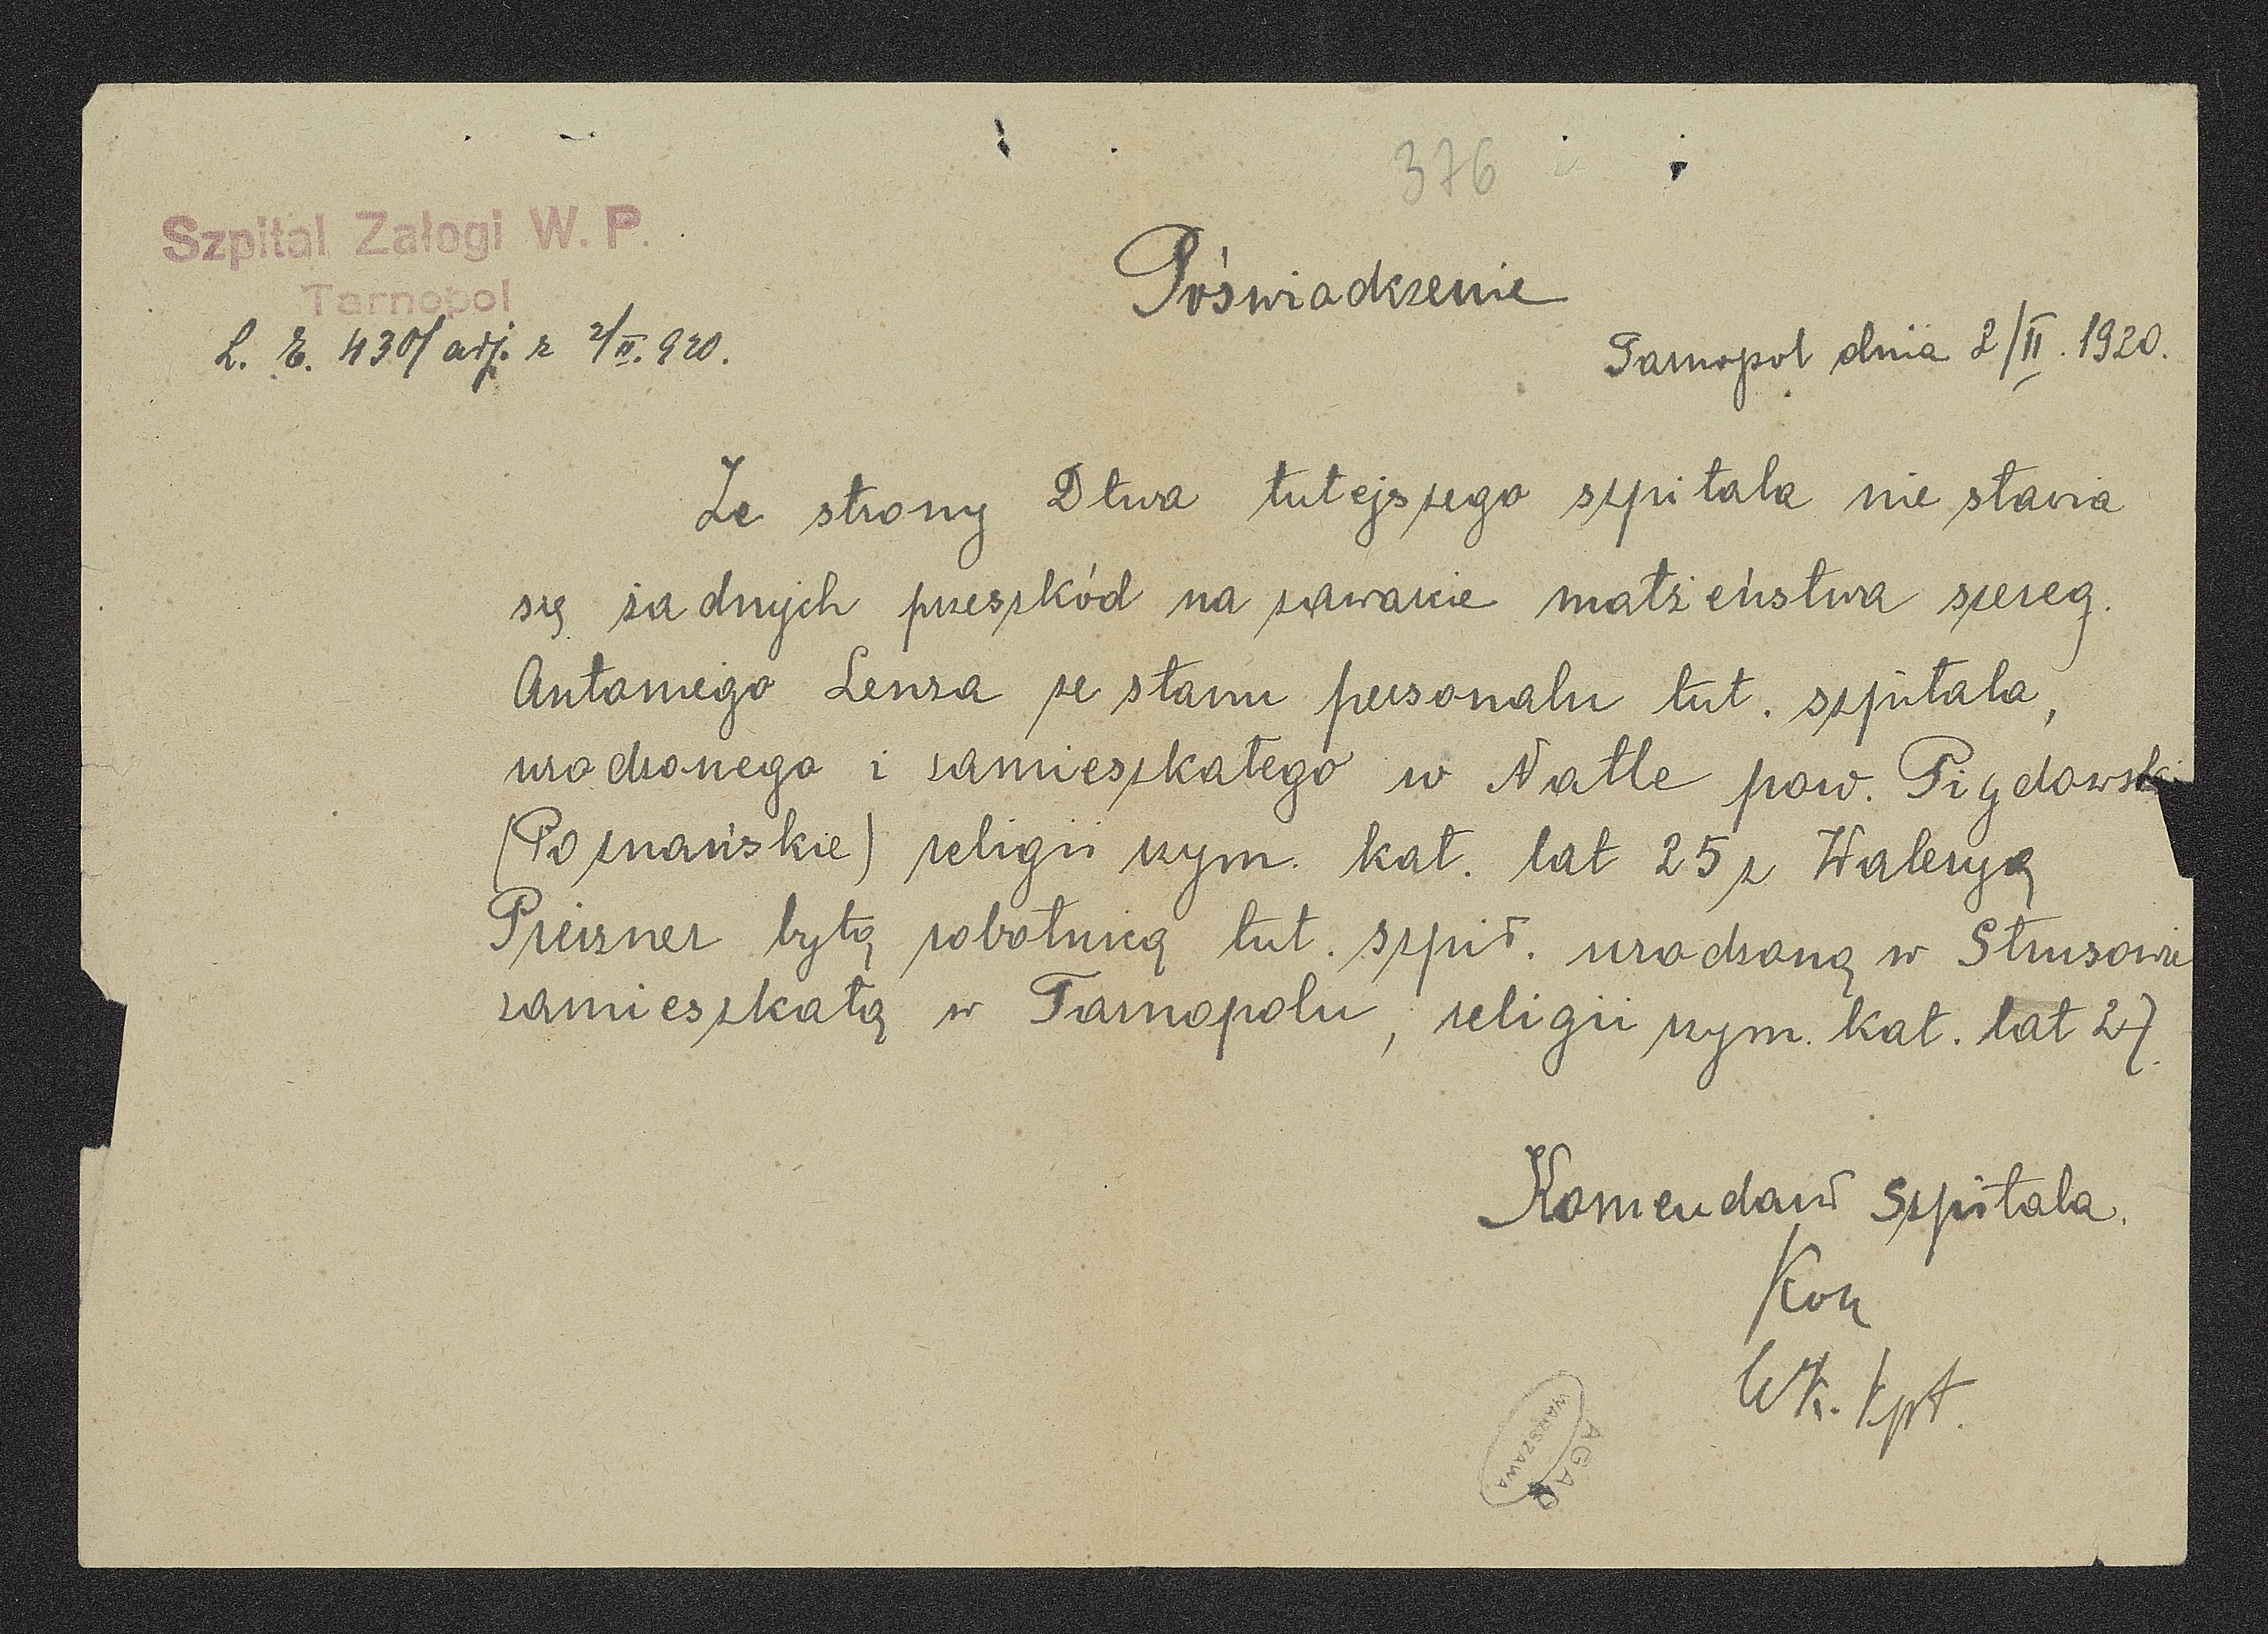 376
Szpital Załogi W. P.
Tarnopol
Poświadczenie
L. E. 430/adj. z 2/II. 920.
Tarnopol dnia 2/II. 1920.
Ze strony Dtwa tutejszego szpitala nie stawia
się żadnych przeszkód na zawarcie małżeństwa szereg.
Antoniego Lenza ze stanu personalu tut. szpitala,
urodzonego i zamieszkałego w Natle pow.
(Poznańskie) religii rzym. kat. lat 25 z Waleryą
Preizner byłą robotnicą tut. szpit. urodzoną w Strusowie
zamieszkałą w Tarnopolu, religii rzym. kat. lat 27.
Komendant szpitala.
kpt.
AGAD
WARSZAWA